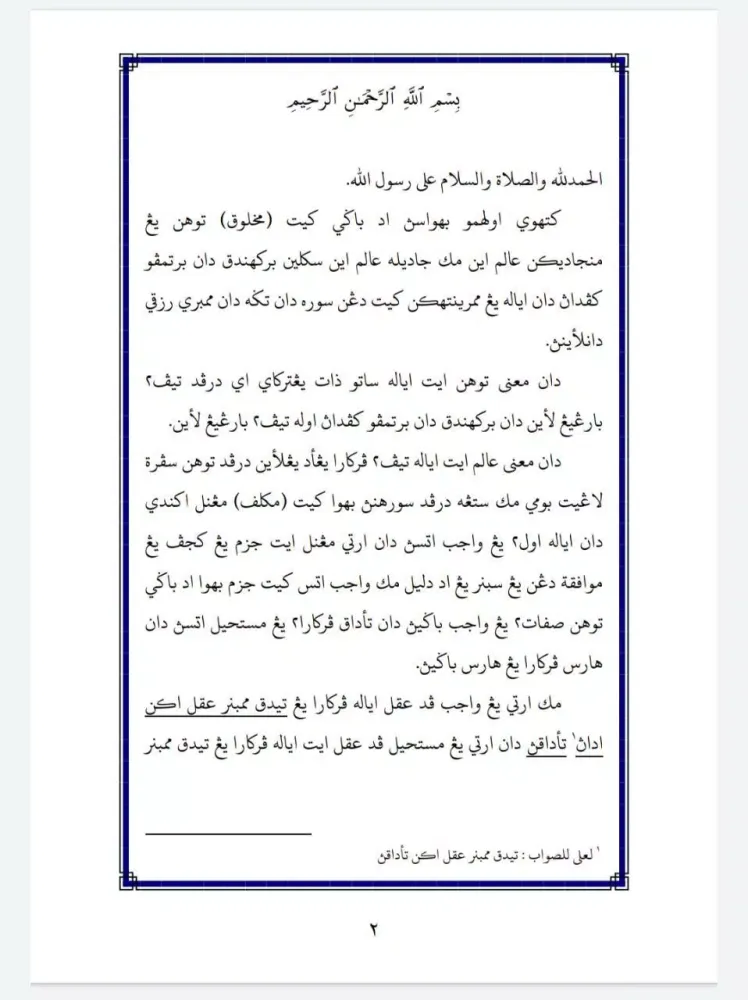 بِسْمِ ٱللَّهِ ٱلرَّحْمَـٰنِ ٱلرَّحِيمِ
الحمدلله والصلاة والسلام على رسول الله.
كتهوي اولهمو بهواسڽ اد باݢي كيت (مخلوق) توهن يڠ
منجاديكن عالم اين مك جاديله عالم اين سكلين بركهندق دان برتمڤو
كڤداڽ دان اياله يڠ ممرينتهكن كيت دڠن سوره دان تݢه دان ممبري رزقي
دانلأينڽ.
دان معنى توهن ايت اياله ساتو ذات يڠتركاي اي درڤد تيڤ٢
بارڠيڠ لأين دان بركهندق دان برتمڤو كڤداڽ اوله تيڤ٢ بارڠيڠ لأين.
دان معنى عالم ايت اياله تيڤ٢ ڤركارا يڠأد يڠلأين درڤد توهن سڤرة
لاڠيت بومي مك ستڠه درڤد سورهنڽ بهوا كيت (مكلف) مڠنل اكندي
دان اياله اول٢ يڠ واجب اتسڽ دان ارتي مڠنل ايت جزم يڠ كجڤ يڠ
موافقة دڠن يڠ سبنر يڠ اد دليل مك واجب اتس كيت جزم بهوا اد باݢي
توهن صفات٢ يڠ واجب باݢيڽ دان تأداق ڤركارا٢ يڠ مستحيل اتسڽ دان
هارس ڤركارا يڠ هارس باݢيڽ.
مك ارتي يڠ واجب ڤد عقل اياله ڤركارا يڠ تيدق ممبنر عقل اكن
اداڽ١ تأداقڽ دان ارتي يڠ مستحيل ڤد عقل ايت اياله ڤركارا يڠ تيدق ممبنر
١ لعلى للصواب : تيدق ممبنر عقل اكن تأداقڽ
٢